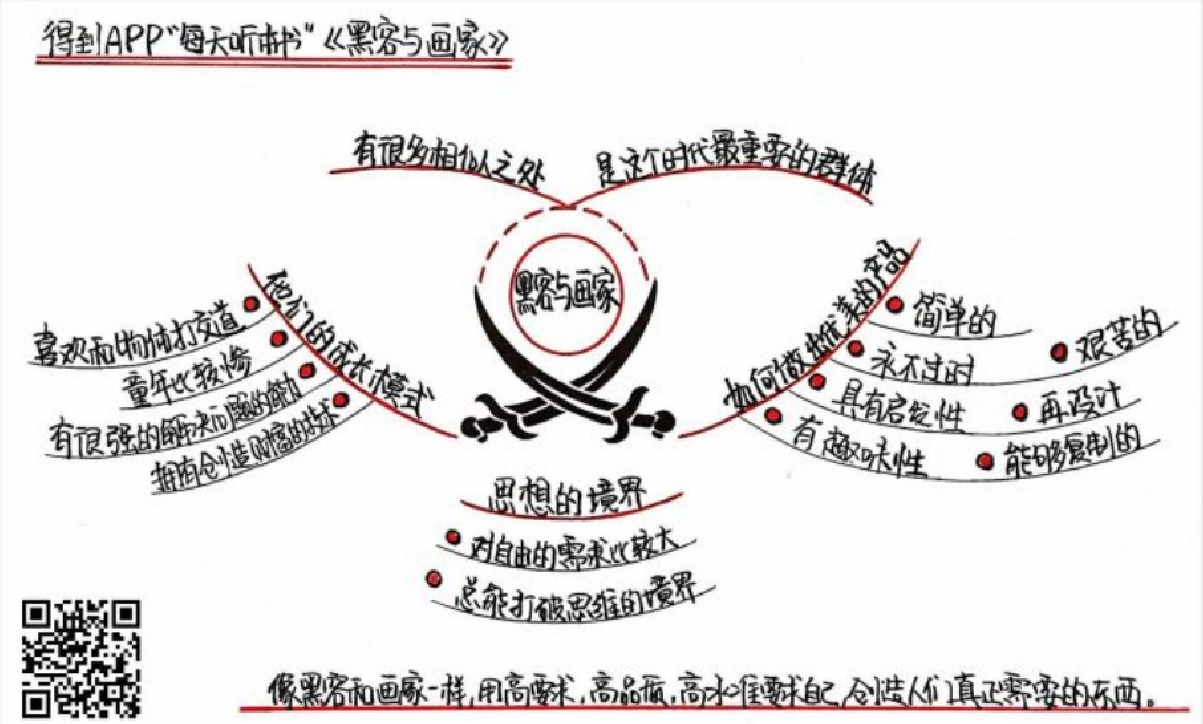 得到APP"每天听本书"《黑客与画家》
有很多相似之处
是这个时代最重要的群体
黑客与画家
他们的成长模式
喜欢和物体打交道
童年比较惨
有很强的解决问题的能力
拥有创造财富的技术
如何做出优美的产品
简单的
永不过时
艰苦的
具有启发性
再设计
有趣味性
能够复制的
思想的境界
对自由的需求比较大
总能打破思维的境界
像黑客和画家一样,用高要求,高品质,高水准要求自己,创造人们真正需要的东西。